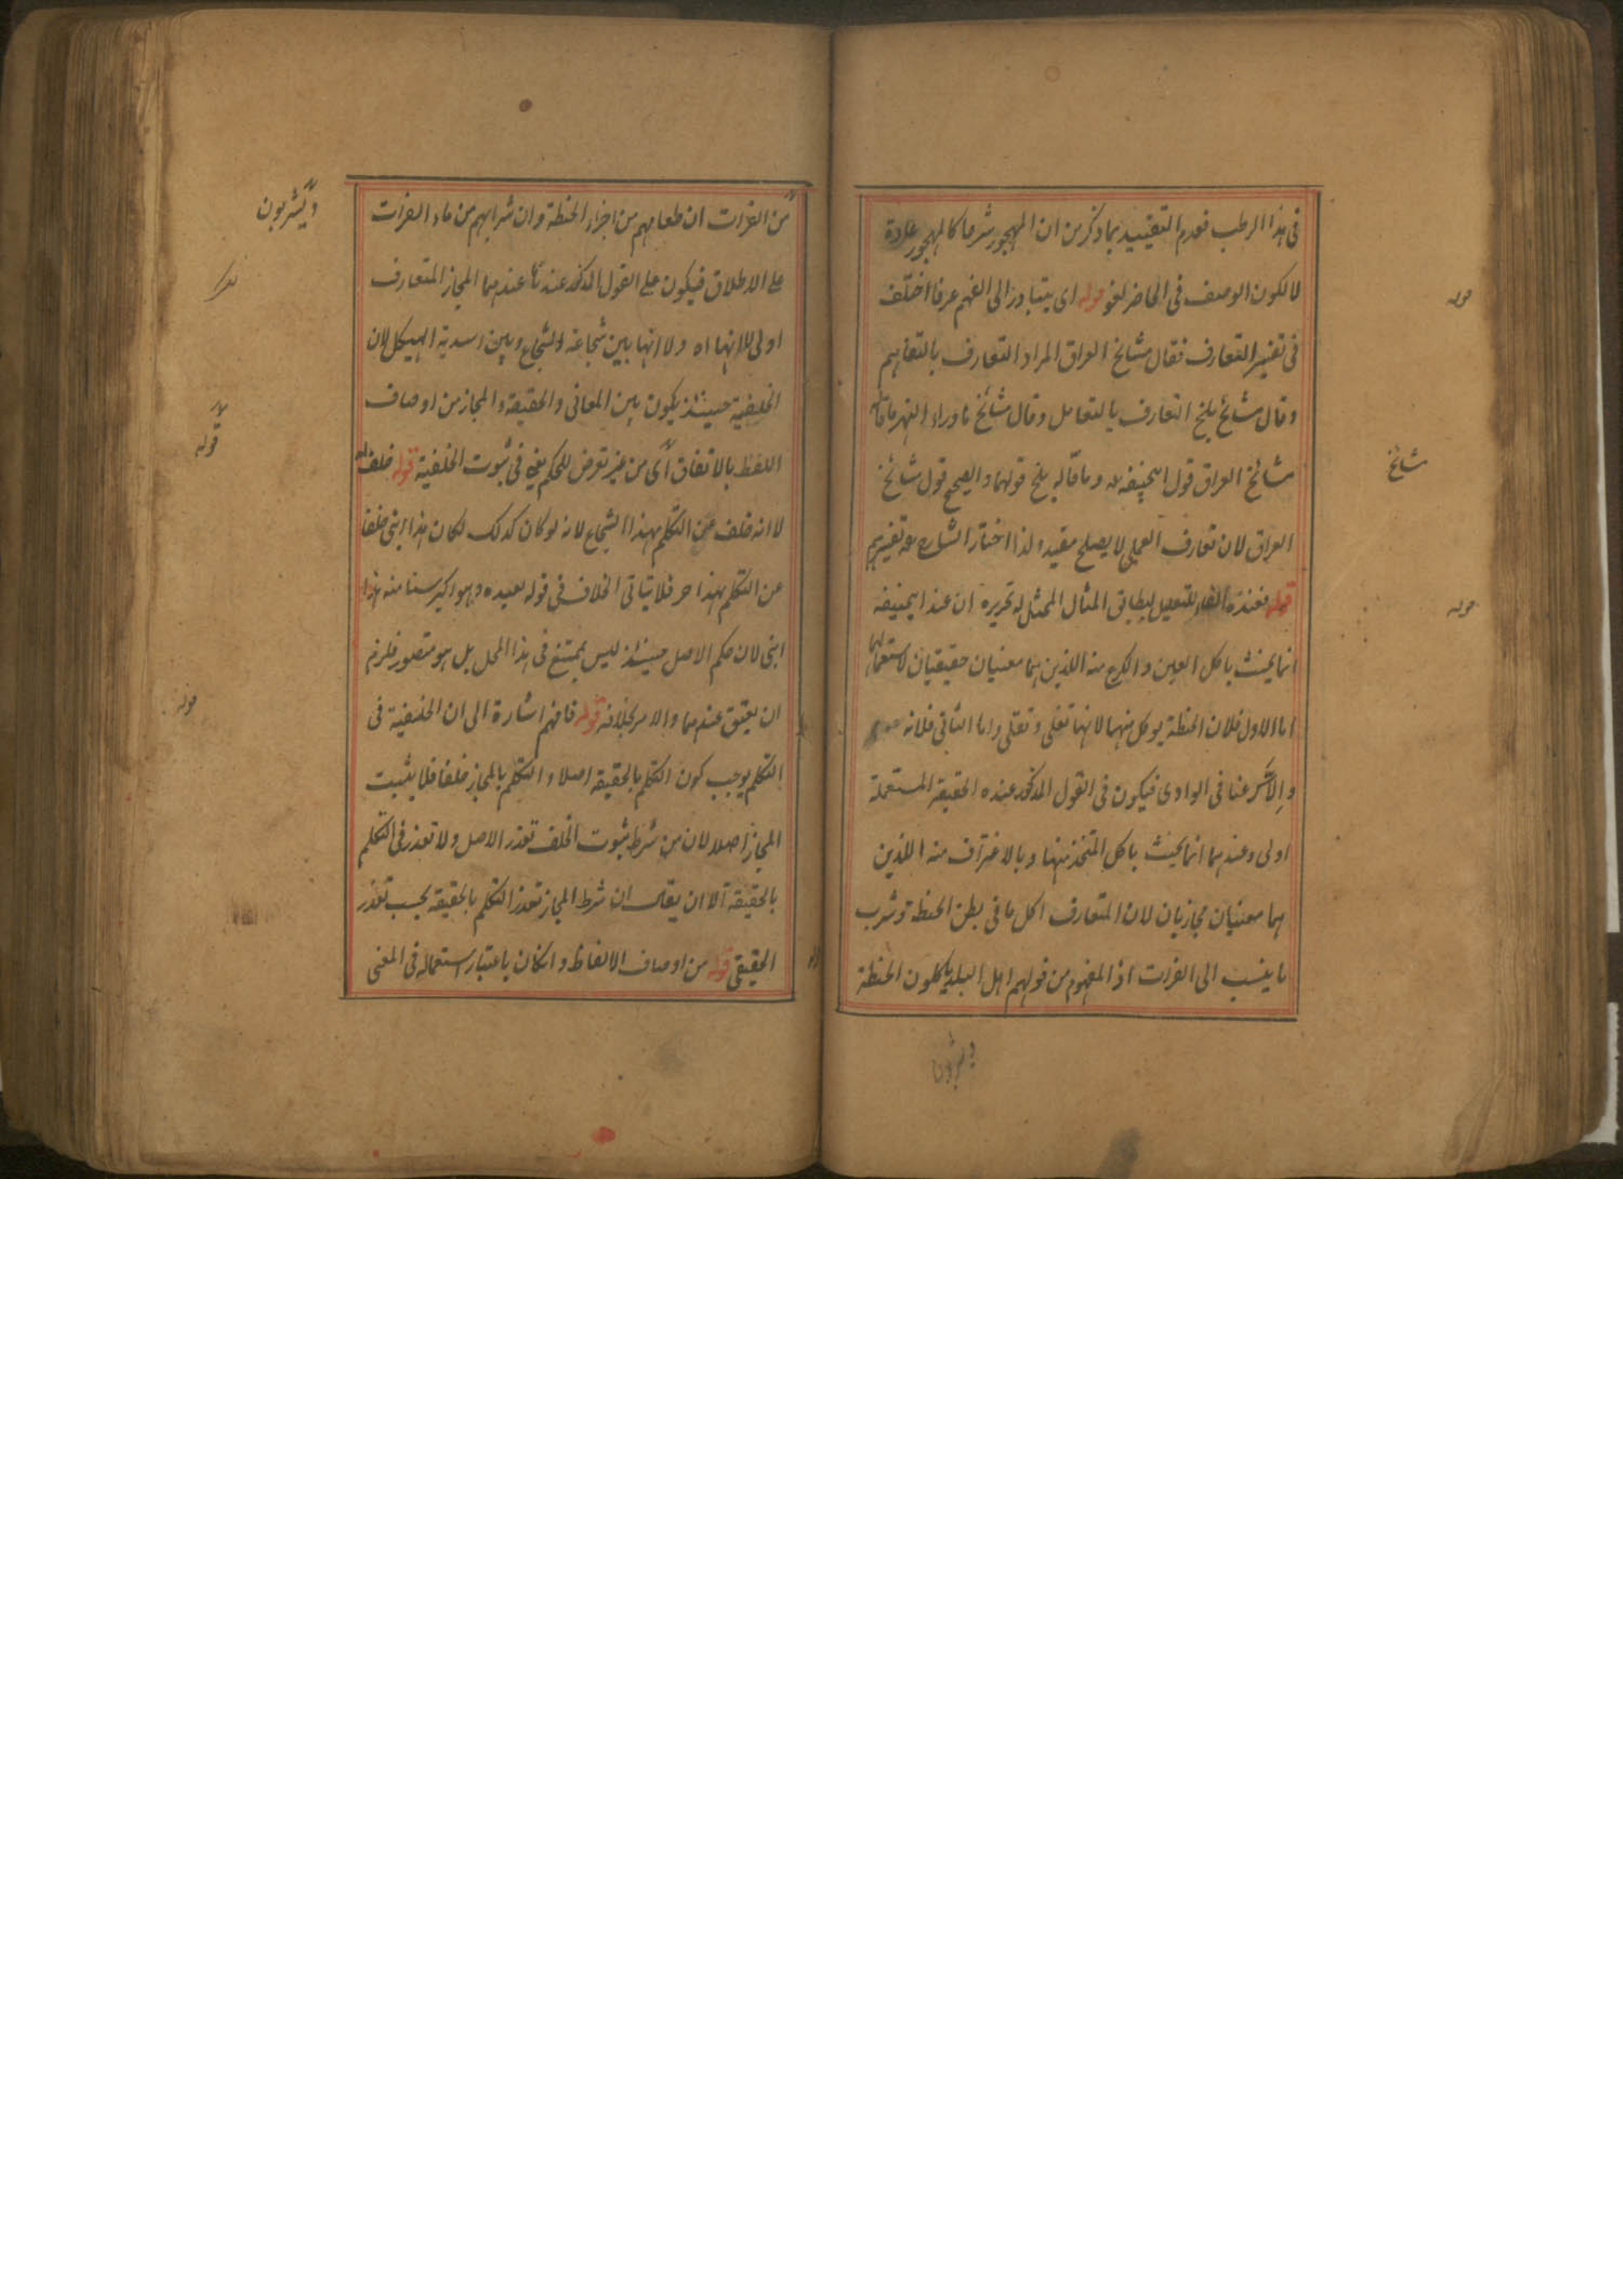 فی هذا الرطب فعدم التقیید بما ذکر من ان المهجور شرعا کالمهجور عادة
لا لکون الوصف فی الحاضر لغو قوله ای یتبادر الی الفهم عرفا اختلف
فی تفسیر التعارف فقال مشایخ العراق المراد التعارف بالتفاهم
وقال مشائخ بلخ التعارف بالتعامل وقال مشائخ ماوراء النهر ما قاله
مشائخ العراق قول ابیحنیفه وما قاله بلخ قولهما والصحیح قول مشائخ
العراق لان تعارف العمل لا یصلح مقیدا ولذا اختار الشارح تفسیرهم
قوله فعنده الفاء للتعلیل لیطابق المثال الممثل له تحریره ان عند ابیحنیفه
انما یحنث باکل العین والکرع منه اللذین هما معنیان حقیقیان لاستعمالهما
اما الاول فلان الحنطة یوکل منهما لانها تغلی وتقلی واما الثانی فلانه
فی الوادی فیکون فی القول المذکور عنده الحقیقة المستعملة
اولی وعندهما انما یحنث باکل المتخذ منها وبالاغتراف منه اللذین
هما معنیان مجازیان لان المتعارف اکل ما فی بطن الحنطة وشرب
ما ینسب الی الفرات اذ المفهوم من قولهم اهل البلد یاکلون الحنطة
ویشربون
قوله
مشائخ
قوله
من الفرات ان طعامهم من اجزاء الحنطة وان شرابهم من ماء الفرات
علی الاطلاق فیکون علی القول المذکور عندهما المجاز المتعارف
اولی لا انها اه ولا انها بین شجاعة الشجاع وبین اسدیة الهیکل لان
الخلفیة حینئذ یکون بین المعانی والحقیقة والمجاز من اوصاف
اللفظ بالاتفاق ای من غیر تعرض للحکم یعنی فی ثبوت الخلفیة قوله خلف
لا انه خلف عن التکلم بهذا الشجاع لانه لو کان کذلک لکان هذا ابنی خلفا
عن التکلم بهذا حر فلا یتاتی الخلاف فی قوله لعبده وهو اکبر سنا منه هذا
ابنی لان حکم الاصل حینئذ لیس بممتنع فی هذا المحل بل هو متصور فلزم
ان یعتق عندهما والامر بخلافه قوله فافهم اشارة الی ان الخلفیة فی
التکلم یوجب کون التکلم بالحقیقة اصلا والتکلم بالمجاز خلفا فلا یثبت
المجاز اصلا لان من شرط ثبوت الخلف تعذر الاصل ولا تعذر فی التکلم
بالحقیقة الا ان یقال ان شرط المجاز تعذر التکلم بالحقیقة بحسب تعذر
الحقیقی قوله من اوصاف الالفاظ وانکان باعتبار استعماله فی المعنی
ویشربون
قوله
قوله